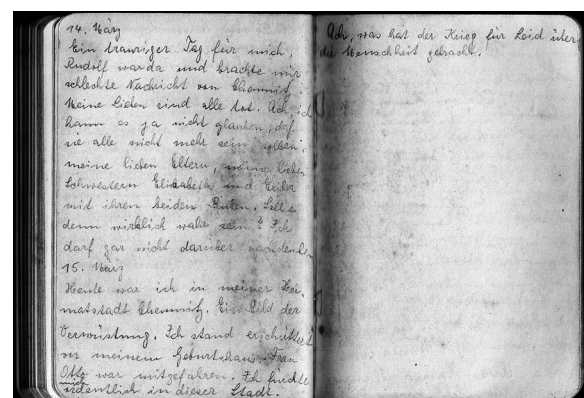 14. März
Ein trauriger Tag für mich,
Rudolf war da und brachte mir
schlechte Nachricht von Chemnitz.
Meine Lieben sind alle tot. Ach, ich
kann es ja nicht glauben, daß
sie alle nicht mehr sein sollen,
meine lieben Eltern, meine lieben
Schwestern Elisabeth und Erika
mit ihren beiden Buben. Soll es
denn wirklich wahr sein? Ich
darf gar nicht darüber nachdenken
15. März
Heute war ich in meiner Hei-
matstadt Chemnitz. Ein Bild der
Verwüstung. Ich stand erschüttert
vor meinem Geburtshaus. Frau
Otto war mitgefahren. Ich fürchte
mich ordentlich in dieser Stadt.
Ach, was hat der Krieg für Leid über
die Menschheit gebracht.